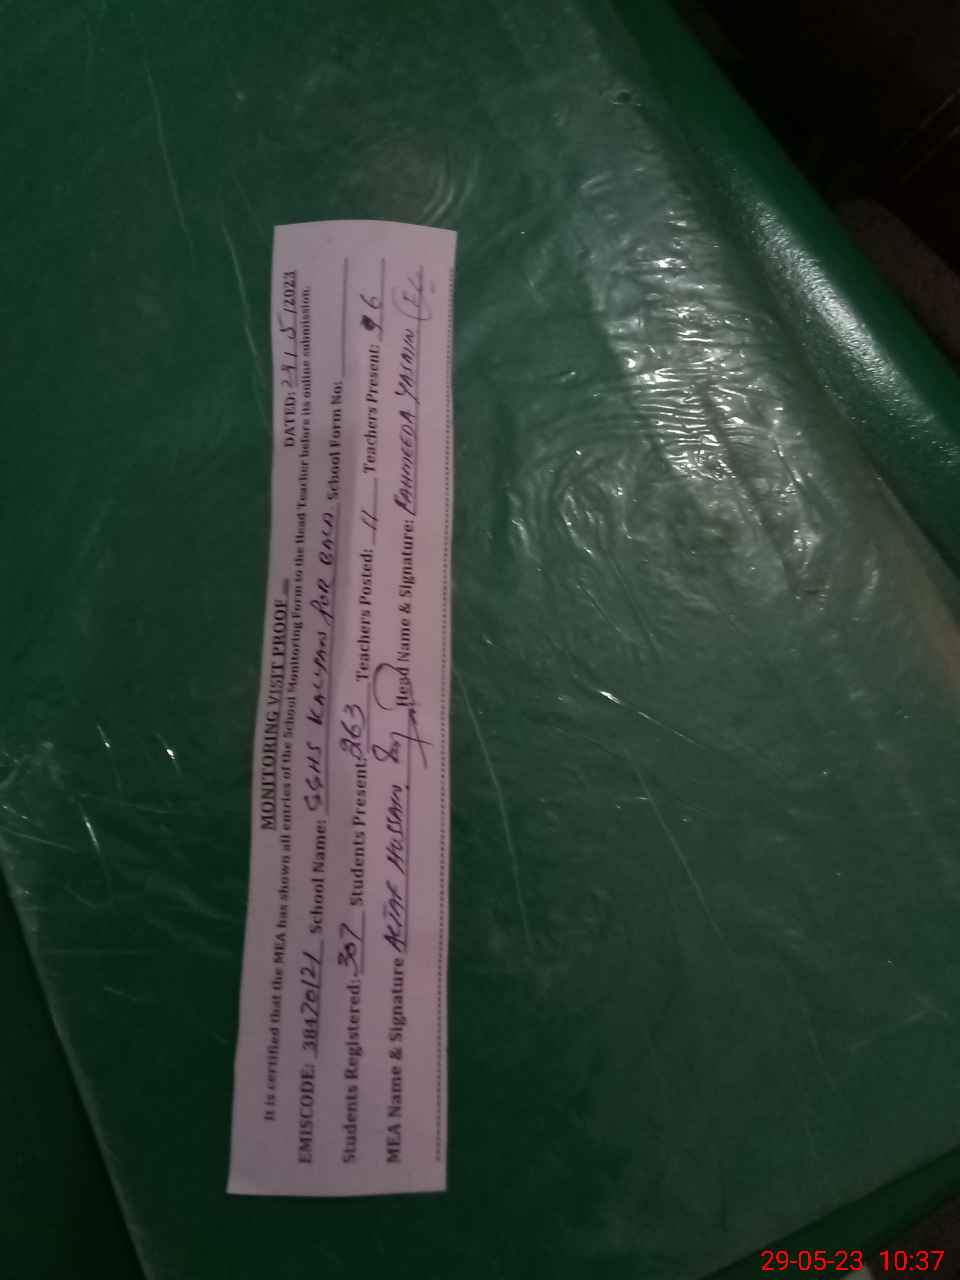 MONITORING VISIT PROOF
DATED: 29/5/2023
It is certified that the MEA has shown all entries of the School Monitoring Form to the Head Teacher before its online submission.
EMISCODE: 38470121 School Name: GGHS KALYAN POR BALA School Form No:
Students Registered: 307 Students Present: 263 Teachers Posted: 11 Teachers Present: 96
MEA Name & Signature ALTAF HUSSAIN Head Name & Signature: FAHMEEDA YASMIN
29-05-23 10:37